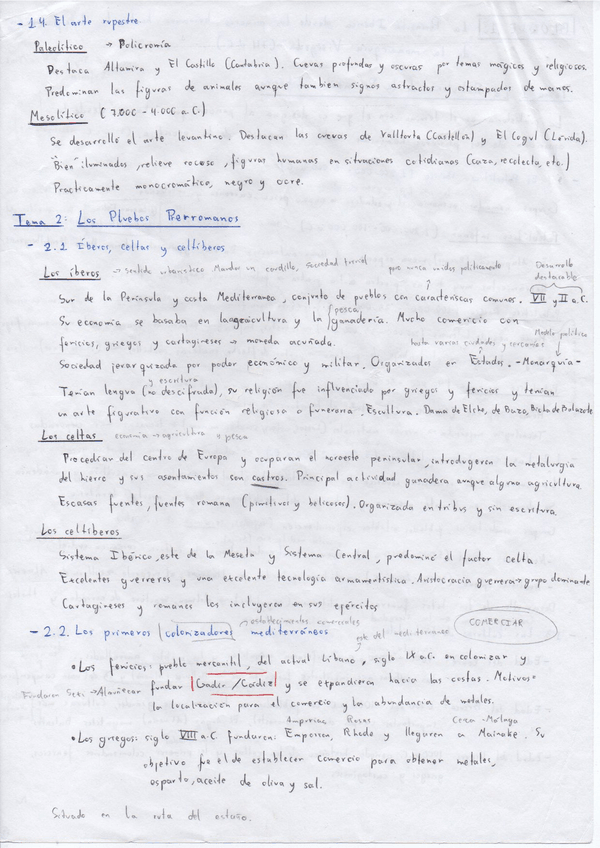 - 1.4. El arte rupestre
Paleolítico → Policromía
Destaca Altamira y El Castillo (Cantabria). Cuevas profundas y oscuras por temas mágicos y religiosos.
Predominan las figuras de animales aunque tambien signos astractos y estampados de manos.
Mesolítico (7.000 - 4.000 a.C.)
Se desarrolló el arte levantino. Destacan las cuevas de Valltorta (Castellón) y El Cogul (Lérida).
"Bien" iluminados, relieve rocoso, figuras humanas en situaciones cotidianas (caza, recolecta, etc.)
Practicamente monocromático, negro y ocre.
Tema 2: Los Pluebos Prerromanos
- 2.1 Íberos, celtas y celtíberos
Los íberos → sentido urbanístico. Mandar un caudillo, sociedad tribal
pero nunca unidos políticamente
Desarrollo destacable
Sur de la Península y costa Mediterranea, conjunto de pueblos con caracteríscas comunes. VII y II a.C.
pesca
Su economía se basaba en la agricultura y la ganadería. Mucho comericio con
hasta varias ciudades y cercanías
Modelo político
fenicios, griegos y cartagineses → moneda acuñada.
Sociedad jerarquizada por poder económico y militar. Organizados en Estados. - Monarquía -
y escritura
Tenían lengua (no descifrada), su religión fue influenciada por griegos y fenicios y tenían
un arte figurativo con función religiosa o funeraria. Escultura. Dama de Elche, de Baza, Bicha de Balazote
Los celtas economía → agricultura y pesca
Procedían del centro de Europa y ocuparan el noroeste peninsular, introdugeron la metalurgia
del hierro y sus asentamientos son castros. Principal actividad ganadera aunque alguna agricultura.
Escasas fuentes, fuentes romana (pimitivos y belicosos). Organizada en tribus y sin escritura.
Los celtíberos
Sistema Ibérico, este de la Meseta y Sistema Central, predominó el factor celta.
Excelentes guerreros y una excelente tecnología armamentística. Aristocracia guerrera → grupo dominante.
Cartagineses y romanos los incluyeron en sus ejércitos
establecimientos comerciales
COMERCIAR
- 2.2. Los primeros colonizadores mediterráneos
este del mediterraneo
• Los fenicios: pueblo mercantil, del actual Líbano, siglo IX a.C. en colonizar y
Fundaron Sexi → Almuñecar
fundar Gadir / Cádiz y se expandieron hacia las costas. Motivos:
la localización para el comercio y la abundancia de metales.
Ampurias Rosas Cerca - Málaga
• Los griegos: siglo VIII a.C. fundaron: Emporion, Rhode y llegaron a Mainake. Su
objetivo fue el de establecer comercio para obtener metales,
esparto, aceite de oliva y sal.
Situado en la ruta del estaño.